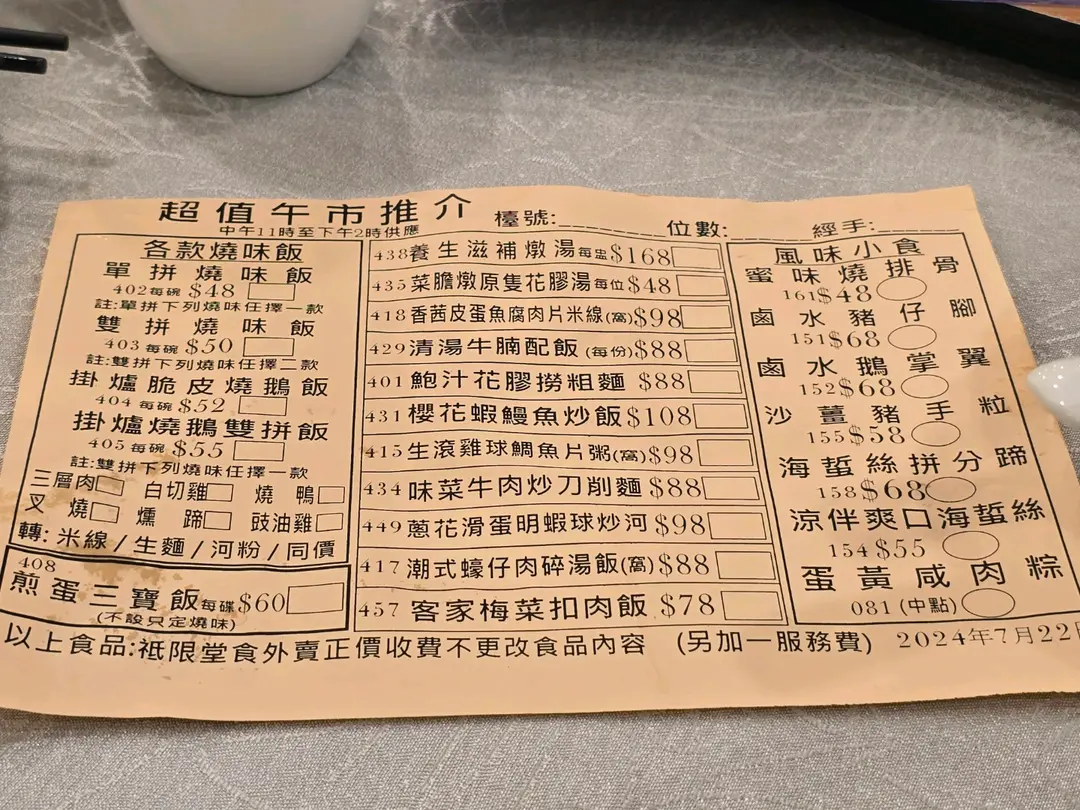 超值午市推介
中午11時至下午2時供應
檯號:
位數:
經手:
各款燒味飯
單拼燒味飯
402每碗 $48
註:單拼下列燒味任擇一款
雙拼燒味飯
403每碗 $50
註:雙拼下列燒味任擇二款
掛爐脆皮燒鵝飯
404每碗 $52
掛爐燒鵝雙拼飯
405每碗 $55
註:雙拼下列燒味任擇一款
三層肉 白切雞 燒鴨
叉燒 燻蹄 豉油雞
轉: 米線/生麵/河粉/同價
408
煎蛋三寶飯每碟$60
(不設只定燒味)
438養生滋補燉湯每盅$168
435菜膽燉原隻花膠湯每位$48
418香茜皮蛋魚腐肉片米線(窩)$98
429清湯牛腩配飯(每份)$88
401鮑汁花膠撈粗麵 $88
431櫻花蝦鰻魚炒飯$108
415生滾雞球鯛魚片粥(窩)$98
434味菜牛肉炒刀削麵 $88
449蔥花滑蛋明蝦球炒河 $98
417潮式蠔仔肉碎湯飯(窩)$88
457客家梅菜扣肉飯 $78
風味小食
蜜味燒排骨
161$48
鹵水豬仔腳
151$68
鹵水鵝掌翼
152$68
沙薑豬手粒
155$58
海蜇絲拼分蹄
158$68
涼伴爽口海蜇絲
154 $55
蛋黃咸肉粽
081 (中點)
以上食品:祗限堂食外賣正價收費不更改食品內容 (另加一服務費) 2024年7月22日